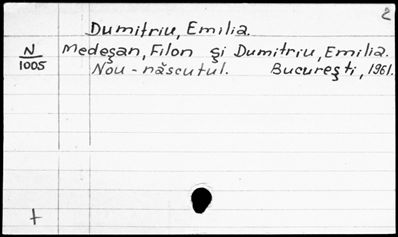 2
Dumitriu, Emilia.
N Medeşan, Filon şi Dumitriu, Emilia.
1005 Nou-născutul. Bucureşti, 1961.
+